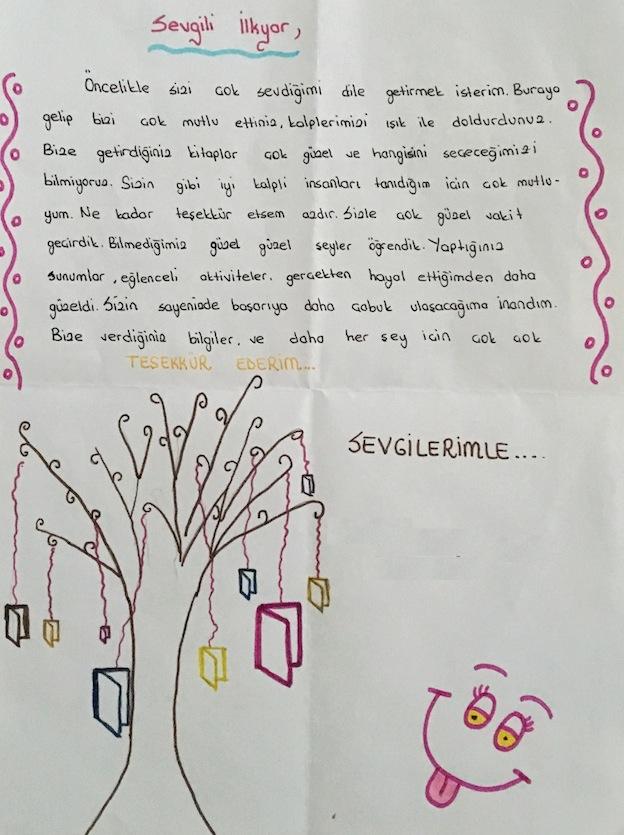 Sevgili İlkyar,
Öncelikle sizi çok sevdiğimi dile getirmek isterim. Buraya
gelip bizi çok mutlu ettiniz, kalplerimizi ışık ile doldurdunuz.
Bize getirdiğiniz kitaplar çok güzel ve hangisini seçeceğimizi
bilmiyoruz. Sizin gibi iyi kalpli insanları tanıdığım için çok mutlu-
yum. Ne kadar teşekkür etsem azdır. Sizle çok güzel vakit
geçirdik. Bilmediğimiz güzel güzel şeyler öğrendik. Yaptığınız
sunumlar, eğlenceli aktiviteler, gerçekten hayal ettiğimden daha
güzeldi. Sizin sayenizde başarıya daha çabuk ulaşacağıma inandım.
Bize verdiğiniz bilgiler, ve daha her şey için çok çok
TEŞEKKÜR EDERİM...
SEVGİLERİMLE....